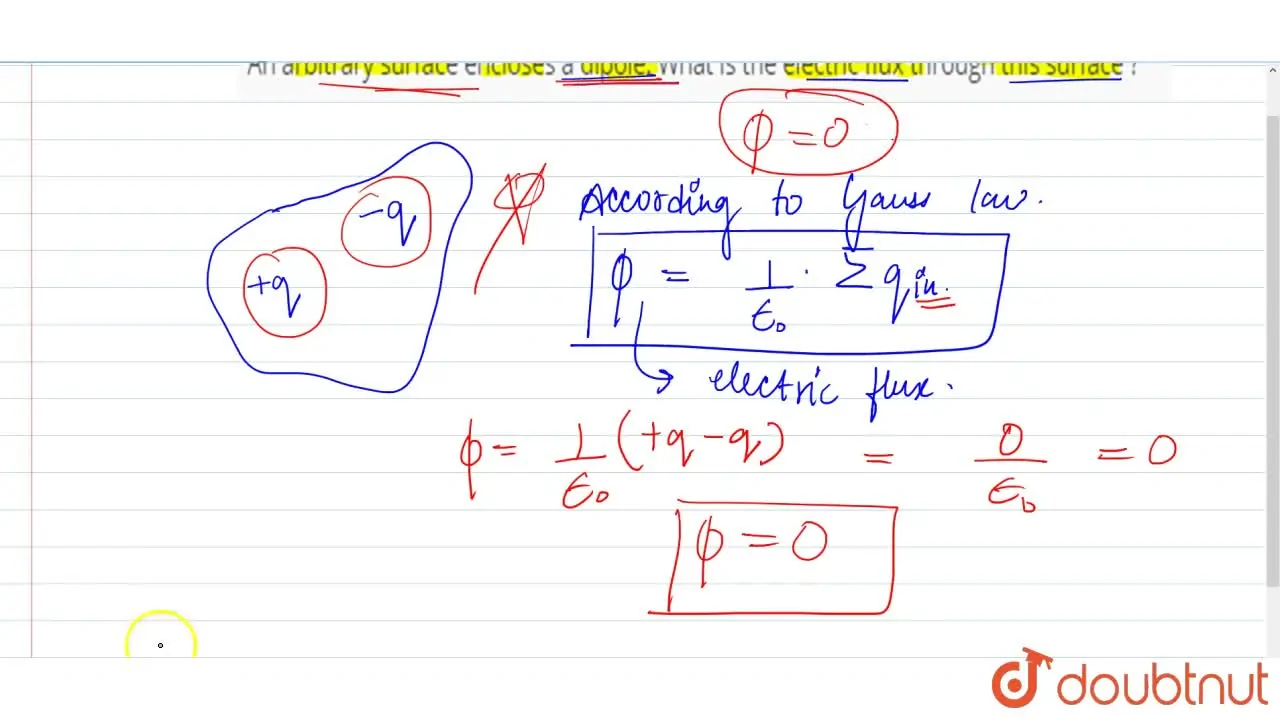 An arbitrary surface encloses a dipole. What is the electric flux through this surface ?
ϕ = 0
-q
+q
ϕ
According to Gauss law.
ϕ = 1/ε₀ · Σ qin.
electric flux.
ϕ = 1/ε₀ (+q - q) = 0/ε₀ = 0
ϕ = 0
doubtnut